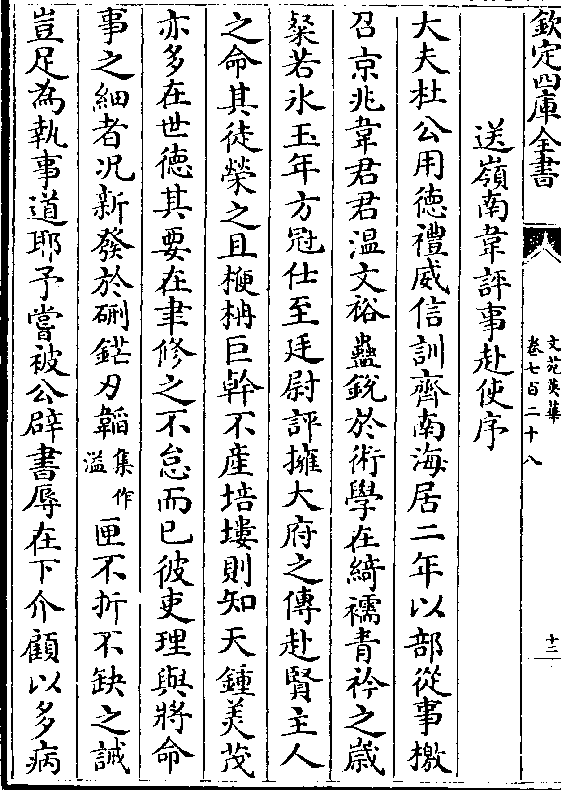 欽定四庫全書
文苑英華
卷七百二十八
十三
送嶺南韋評事赴使序
大夫杜公用德禮威信訓齊南海居二年以部從事檄
召京兆韋君君温文裕蠱銳於術學在綺襦青衿之歳
粲若氷玉年方冠仕至廷尉評擁大府之傳赴賢主人
之命其徒榮之且楩柟巨幹不產培塿則知天鍾美茂
亦多在世德其要在聿修之不怠而已彼吏理與將命
事之細者况新發於硎鋩刃韜集作溢匣不折不缺之誠
豈足為執事道耶予嘗被公辟書辱在下介顧以多病